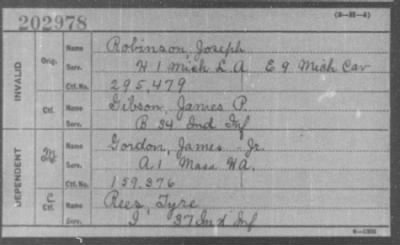 202978
(3-22-4)
INVALID
Orig.
Name Robinson, Joseph
Serv. H 1 Mich L A E 9 Mich Cav
Ctf. No. 295,479
Ctf.
Name Gibson, James P.
Serv. B 34 Ind Inf
DEPENDENT
M
Name Gordon, James Jr.
Serv. A 1 Mass HA.
Ctf. No. 159,376
C
Ctf.
Name Rees, Tyre
Serv. I 37 Ind Inf